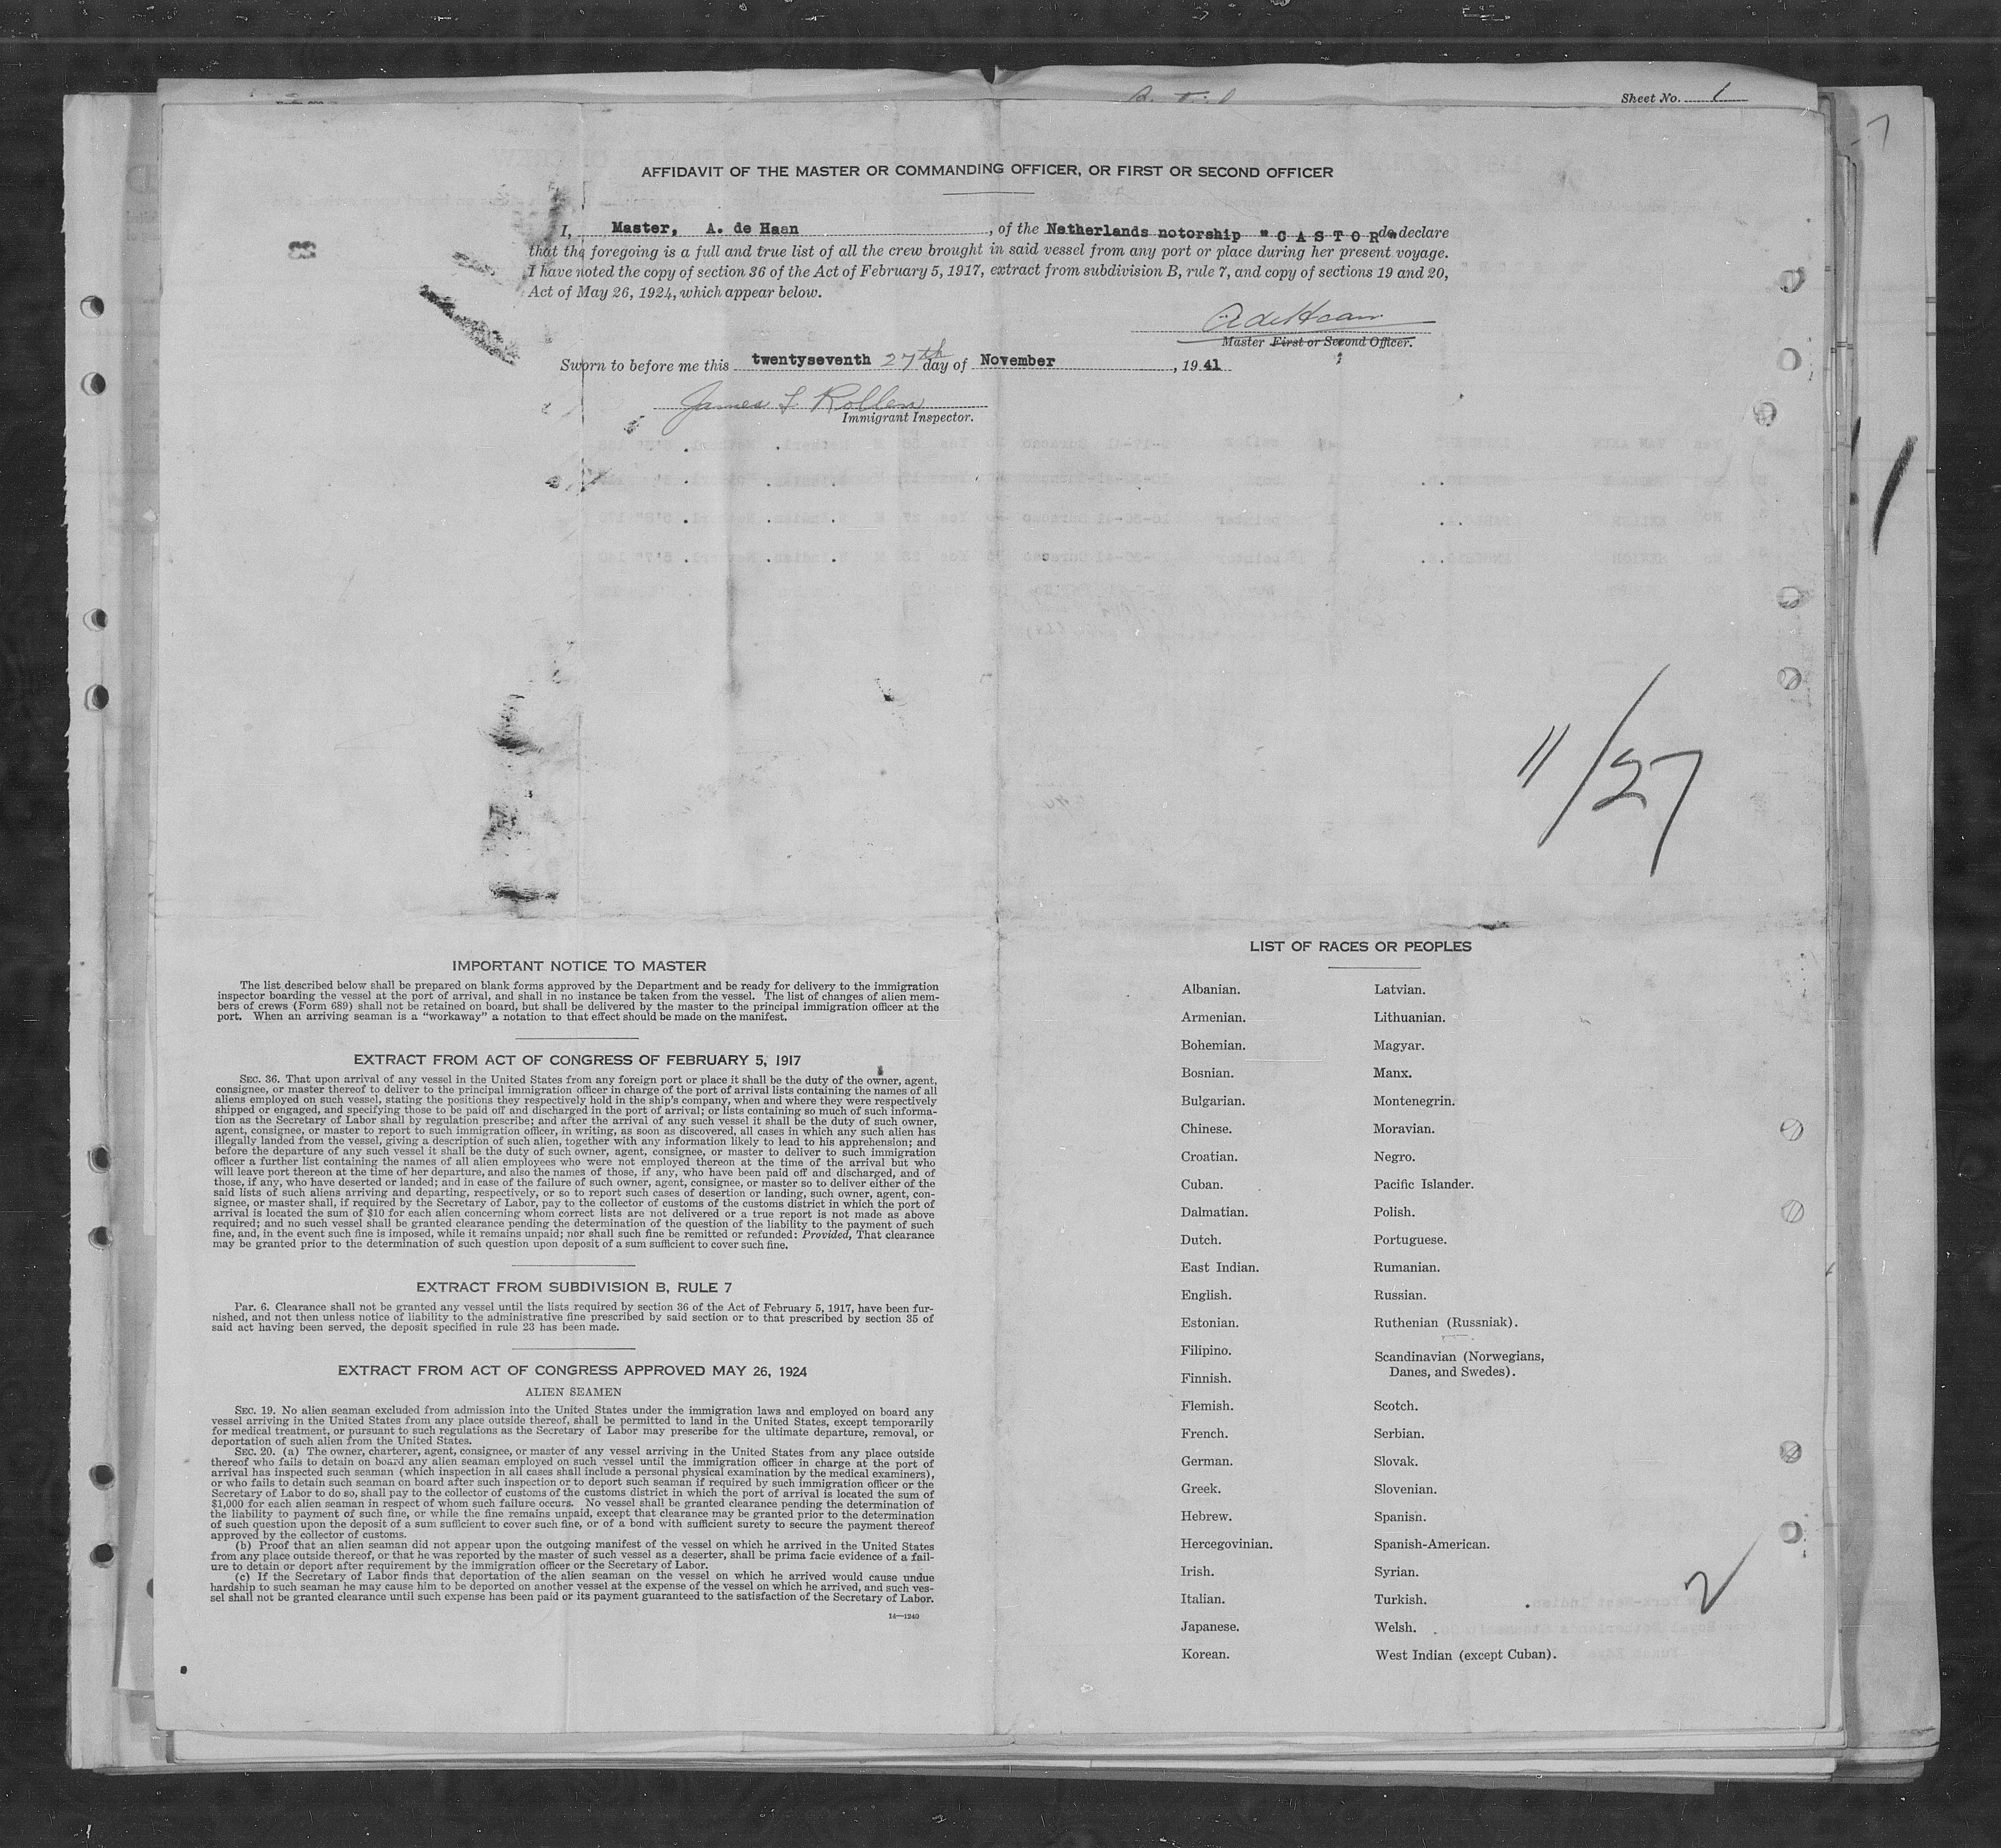 Sheet No. 1
AFFIDAVIT OF THE MASTER OR COMMANDING OFFICER, OR FIRST OR SECOND OFFICER
I, Master, A. de Haan, of the Netherlands notorship "CASTOR" do declare
that the foregoing is a full and true list of all the crew brought in said vessel from any port or place during her present voyage.
I have noted the copy of section 36 of the Act of February 5, 1917, extract from subdivision B, rule 7, and copy of sections 19 and 20,
Act of May 26, 1924, which appear below.
A de Haan
Master First or Second Officer.
Sworn to before me this twentyseventh 27th day of November, 1941
James L. Rollen
Immigrant Inspector.
11/27
IMPORTANT NOTICE TO MASTER
The list described below shall be prepared on blank forms approved by the Department and be ready for delivery to the immigration
inspector boarding the vessel at the port of arrival, and shall in no instance be taken from the vessel. The list of changes of alien mem-
bers of crews (Form 689) shall not be retained on board, but shall be delivered by the master to the principal immigration officer at the
port. When an arriving seaman is a "workaway" a notation to that effect should be made on the manifest.
EXTRACT FROM ACT OF CONGRESS OF FEBRUARY 5, 1917
SEC. 36. That upon arrival of any vessel in the United States from any foreign port or place it shall be the duty of the owner, agent,
consignee, or master thereof to deliver to the principal immigration officer in charge of the port of arrival lists containing the names of all
aliens employed on such vessel, stating the positions they respectively hold in the ship's company, when and where they were respectively
shipped or engaged, and specifying those to be paid off and discharged in the port of arrival; or lists containing so much of such informa-
tion as the Secretary of Labor shall by regulation prescribe; and after the arrival of any such vessel it shall be the duty of such owner,
agent, consignee, or master to report to such immigration officer, in writing, as soon as discovered, all cases in which any such alien has
illegally landed from the vessel, giving a description of such alien, together with any information likely to lead to his apprehension; and
before the departure of any such vessel it shall be the duty of such owner, agent, consignee, or master to deliver to such immigration
officer a further list containing the names of all alien employees who were not employed thereon at the time of the arrival but who
will leave port thereon at the time of her departure, and also the names of those, if any, who have been paid off and discharged, and of
those, if any, who have deserted or landed; and in case of the failure of such owner, agent, consignee, or master so to deliver either of the
said lists of such aliens arriving and departing, respectively, or so to report such cases of desertion or landing, such owner, agent, con-
signee, or master shall, if required by the Secretary of Labor, pay to the collector of customs of the customs district in which the port of
arrival is located the sum of $10 for each alien concerning whom correct lists are not delivered or a true report is not made as above
required; and no such vessel shall be granted clearance pending the determination of the question of the liability to the payment of such
fine, and, in the event such fine is imposed, while it remains unpaid; nor shall such fine be remitted or refunded: Provided, That clearance
may be granted prior to the determination of such question upon deposit of a sum sufficient to cover such fine.
EXTRACT FROM SUBDIVISION B, RULE 7
Par. 6. Clearance shall not be granted any vessel until the lists required by section 36 of the Act of February 5, 1917, have been fur-
nished, and not then unless notice of liability to the administrative fine prescribed by said section or to that prescribed by section 35 of
said act having been served, the deposit specified in rule 23 has been made.
EXTRACT FROM ACT OF CONGRESS APPROVED MAY 26, 1924
ALIEN SEAMEN
SEC. 19. No alien seaman excluded from admission into the United States under the immigration laws and employed on board any
vessel arriving in the United States from any place outside thereof, shall be permitted to land in the United States, except temporarily
for medical treatment, or pursuant to such regulations as the Secretary of Labor may prescribe for the ultimate departure, removal, or
deportation of such alien from the United States.
SEC. 20. (a) The owner, charterer, agent, consignee, or master of any vessel arriving in the United States from any place outside
thereof who fails to detain on board any alien seaman employed on such vessel until the immigration officer in charge at the port of
arrival has inspected such seaman (which inspection in all cases shall include a personal physical examination by the medical examiners),
or who fails to detain such seaman on board after such inspection or to deport such seaman if required by such immigration officer or the
Secretary of Labor to do so, shall pay to the collector of customs of the customs district in which the port of arrival is located the sum of
$1,000 for each alien seaman in respect of whom such failure occurs. No vessel shall be granted clearance pending the determination of
the liability to payment of such fine, or while the fine remains unpaid, except that clearance may be granted prior to the determination
of such question upon the deposit of a sum sufficient to cover such fine, or of a bond with sufficient surety to secure the payment thereof
approved by the collector of customs.
(b) Proof that an alien seaman did not appear upon the outgoing manifest of the vessel on which he arrived in the United States
from any place outside thereof, or that he was reported by the master of such vessel as a deserter, shall be prima facie evidence of a fail-
ure to detain or deport after requirement by the immigration officer or the Secretary of Labor.
(c) If the Secretary of Labor finds that deportation of the alien seaman on the vessel on which he arrived would cause undue
hardship to such seaman he may cause him to be deported on another vessel at the expense of the vessel on which he arrived, and such ves-
sel shall not be granted clearance until such expense has been paid or its payment guaranteed to the satisfaction of the Secretary of Labor.
14—1240
LIST OF RACES OR PEOPLES
Albanian.
Armenian.
Bohemian.
Bosnian.
Bulgarian.
Chinese.
Croatian.
Cuban.
Dalmatian.
Dutch.
East Indian.
English.
Estonian.
Filipino.
Finnish.
Flemish.
French.
German.
Greek.
Hebrew.
Hercegovinian.
Irish.
Italian.
Japanese.
Korean.
Latvian.
Lithuanian.
Magyar.
Manx.
Montenegrin.
Moravian.
Negro.
Pacific Islander.
Polish.
Portuguese.
Rumanian.
Russian.
Ruthenian (Russniak).
Scandinavian (Norwegians,
Danes, and Swedes).
Scotch.
Serbian.
Slovak.
Slovenian.
Spanish.
Spanish-American.
Syrian.
Turkish.
Welsh.
West Indian (except Cuban).
2